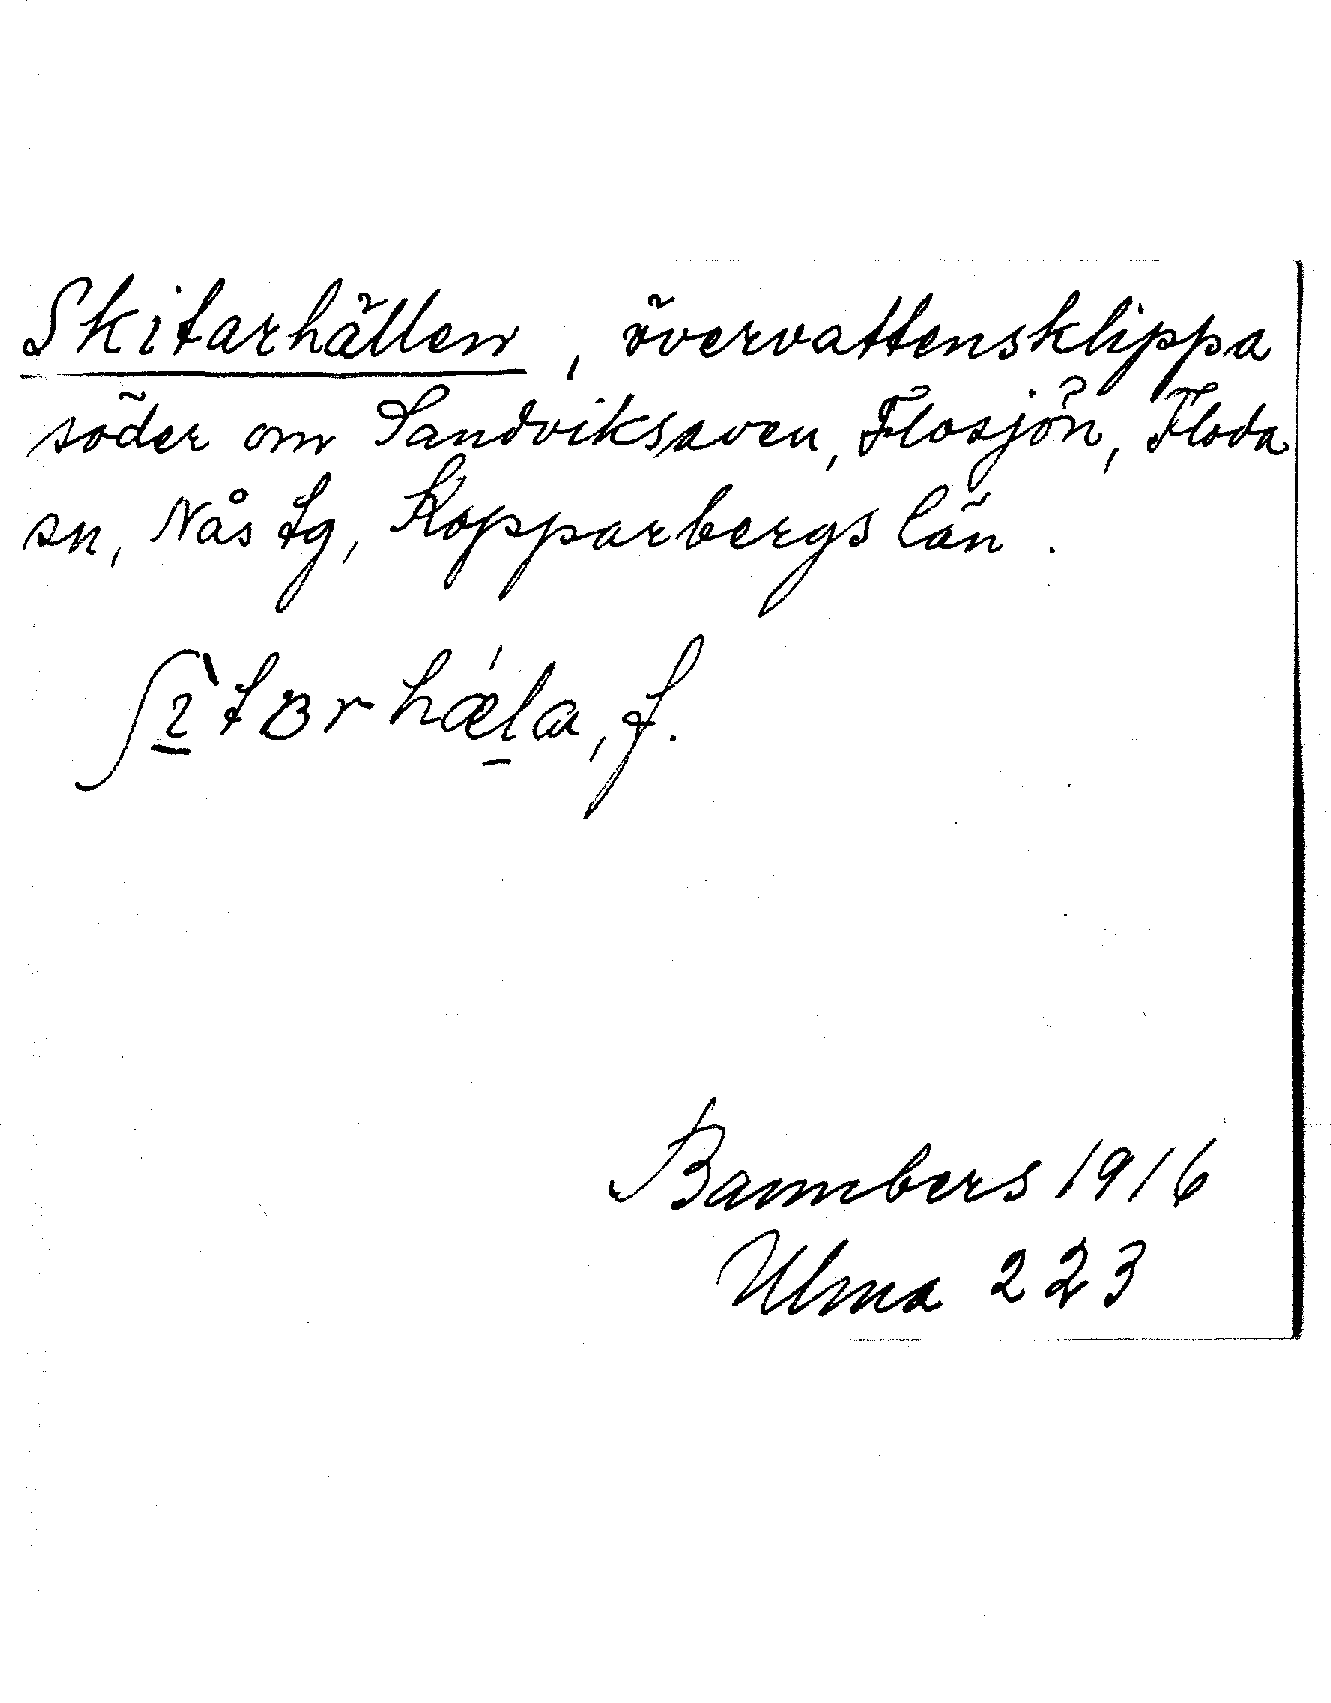 Skitarhällen, övervattensklippa
söder om Sandviksaven, Flosjön, Floda
sn, Nås tg, Kopparbergs län.
f.
Bannbers 1916
Ulma 223